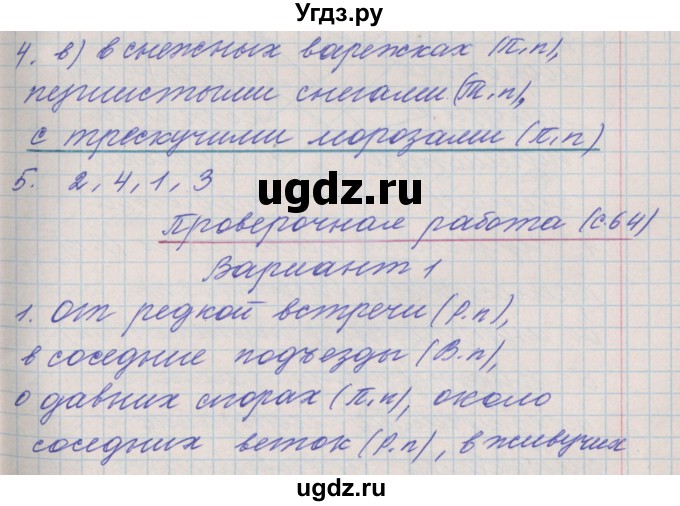 Угдз.ру
4. в) в снежных варежках (П.п),
пушистыми снегами (Т.п),
с трескучими морозами (П.п)
5. 2, 4, 1, 3
ugdz.ru
Проверочная работа (с.64)
Вариант 1
1. От редкой встречи (Р.п),
в соседние подъезды (В.п),
о давних спорах (П.п), около
соседних веток (Р.п), в живучих
ugdz.ru